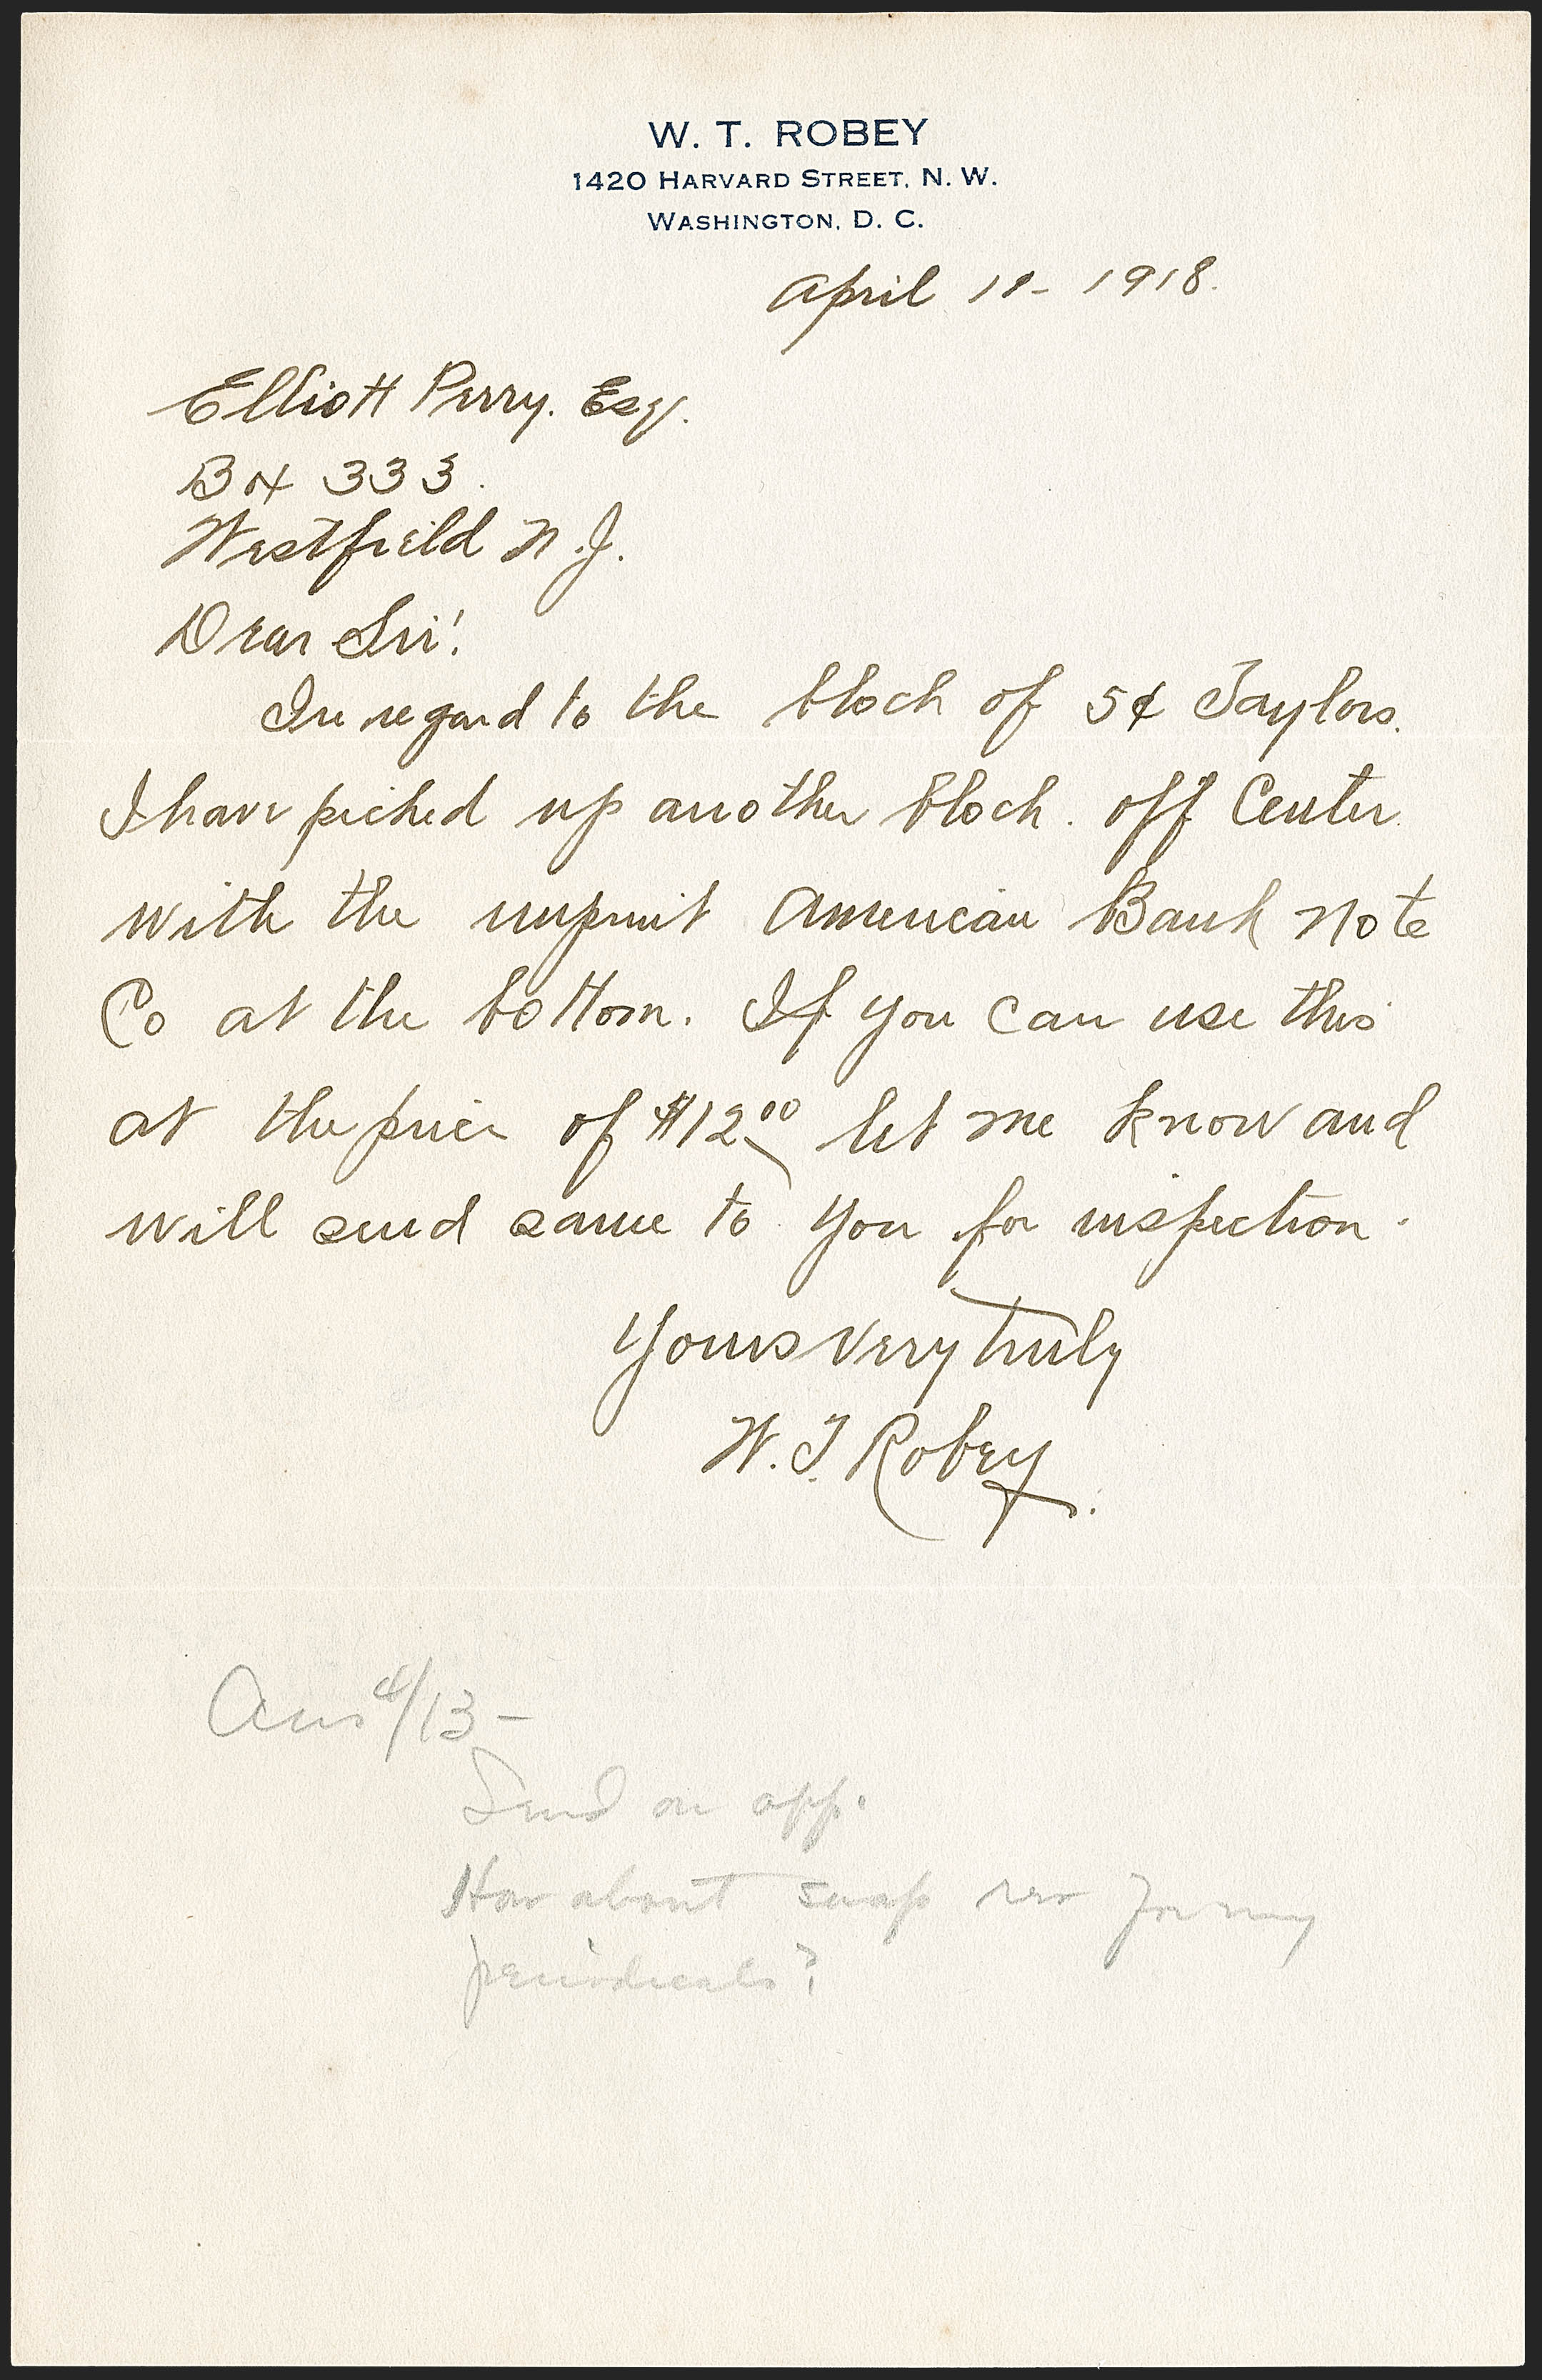 W. T. ROBEY
1420 HARVARD STREET, N. W.
WASHINGTON, D. C.
April 11- 1918.
Elliott Perry. Esq.
Box 333.
Westfield N.J.
Dear Sir!
In regard to the block of 5¢ Taylors.
I have picked up another block. off Center
with the imprint American Bank Note
Co at the bottom. If you can use this
at the price of $12.00 let me know and
will send same to you for inspection.
Yours very truly
W. T. Robey.
Ans 4/13-
Send on app.
How about swap for my
periodicals?